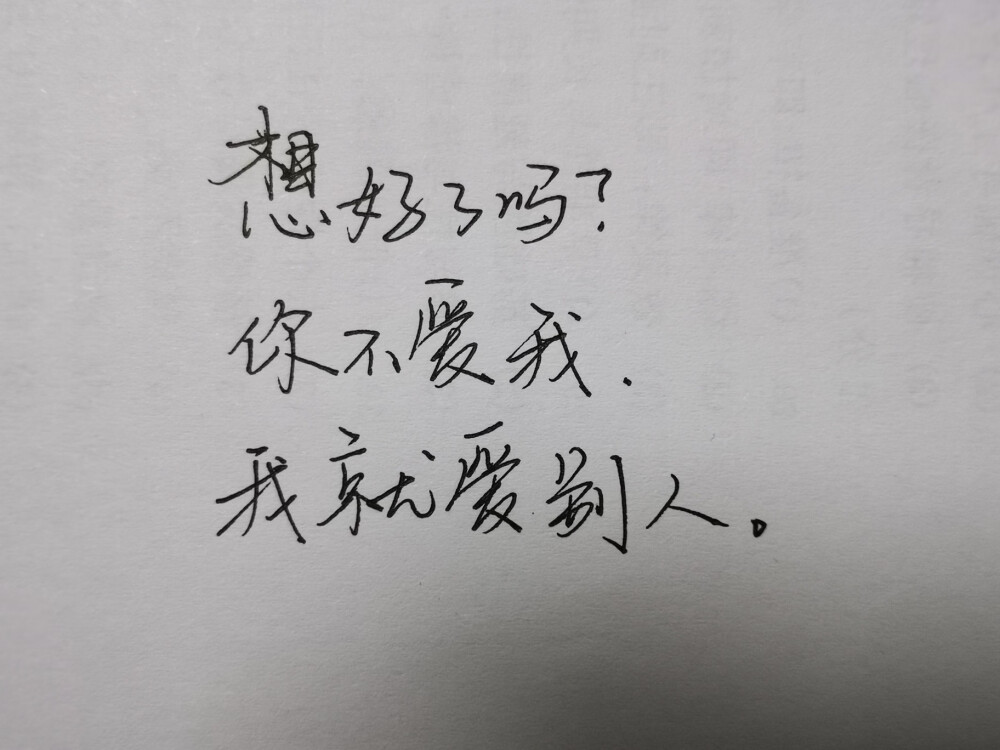 想好了吗?
你不爱我.
我就爱别人。